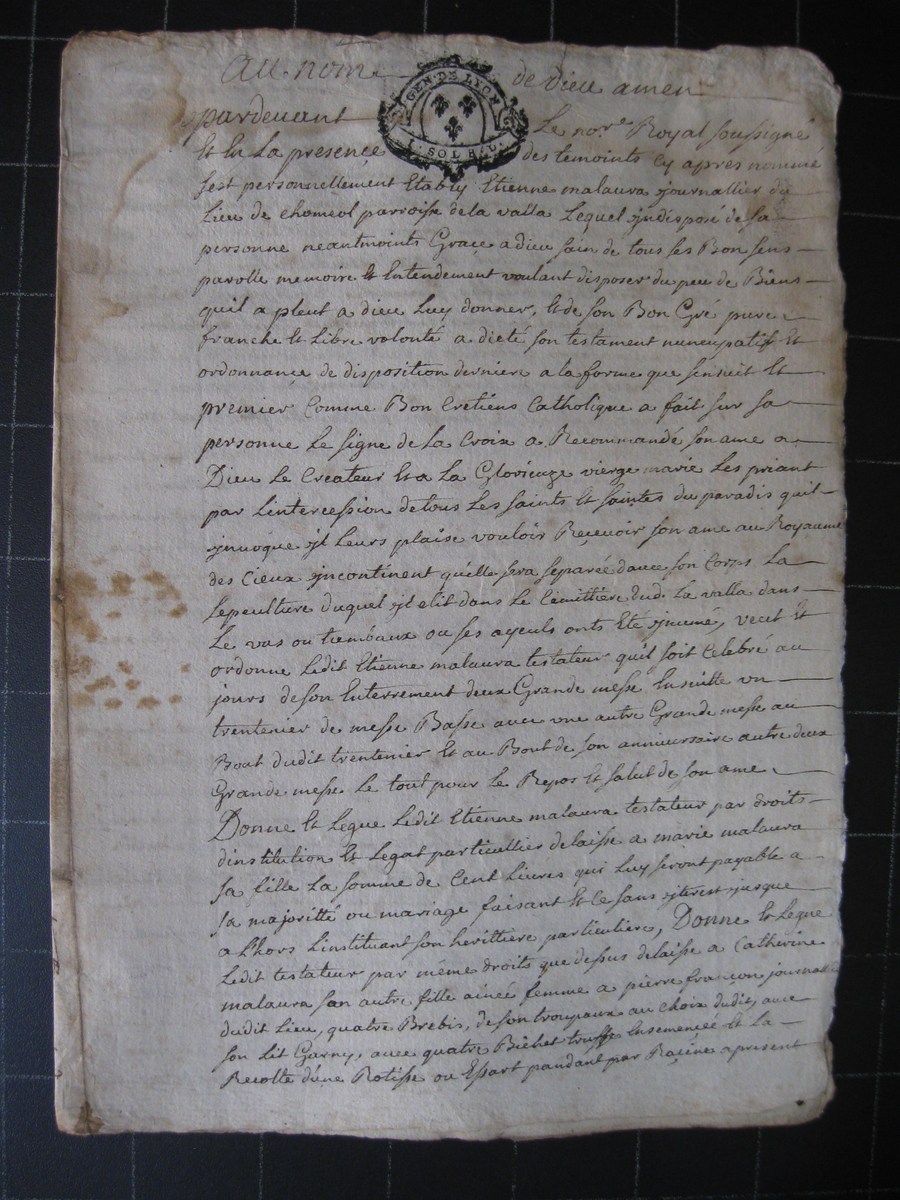 au nom de dieu amen
GEN. DE LYON
1. SOL 8. D.
pardevant Le nore Royal soussigné
Et En La presençe des temoints Cy apres nommé
sest personnellement Etably Etienne malaura journallier du
Lieu de Chomeol parroisse de la valla Lequel jndisposé de sa
personne neantmoints Graçe a dieu sain de tous ses Bon sens
parolle memoire Et Entendement voulant disposer du peu de Biens
quil a pleut a dieu Luy donner, Et de son Bon Gré pure
franche Et Libre volonté a dieté son testament nuncupatif Et
ordonnançe de disposition derniere a la forme que sensuit Et
premier Comme Bon Cretiens Catholique a fait sur sa
personne Le signe de La Croix a Recommandé son ame a
Dieu Le Createur Et a La Glorieuze vierge marie Les priant
par Lintercession de tous Les saints Et saintes du paradis quil
jnvoque jl Leurs plaise vouloir Reçevoir son ame au Royaume
des Cieux jncontinent quelle sera separée davec son Corps La
sepculture duquel jl elit dans Le Cimittiere dud. La valla dans
Le vas ou tumbaux ou ses ayeuls onts Eté jnumé, veut Et
ordonne Ledit Etienne malaura testateur quil soit Celebré au
jours de son Enterrement deux Grande messe Ensuitte un
trentenier de messe Basse avec une autre Grande messe au
Bout dudit trentenier Et au Bout de son anniversaire autre deux
Grande messe Le tout pour Le Repos Et salut de son ame
Donne Et Legue Ledit Etienne malaura testateur par droits
dinstitution Et Legat particullier delaisse a marie malaura
sa fille La somme de Cent Livres qui Luy seront payable a
sa majoritté ou mariage faisant Et Ce sans jnterest jusque
a Lhors Linstituant son herittiere particuliere, Donne Et Legue
Ledit testateur par même droits que dessus delaisse a Catherine
malaura san autre fille ainée femme a pierre françon journal
dudit Lieu, quatre Brebis, de son troupaux au Choix dudit, avec
son Lit Garny, avec quatre Bichet truffe Ensemençée Et La
Recolte déne Rotisse ou Essart pandant par Raçine apresent